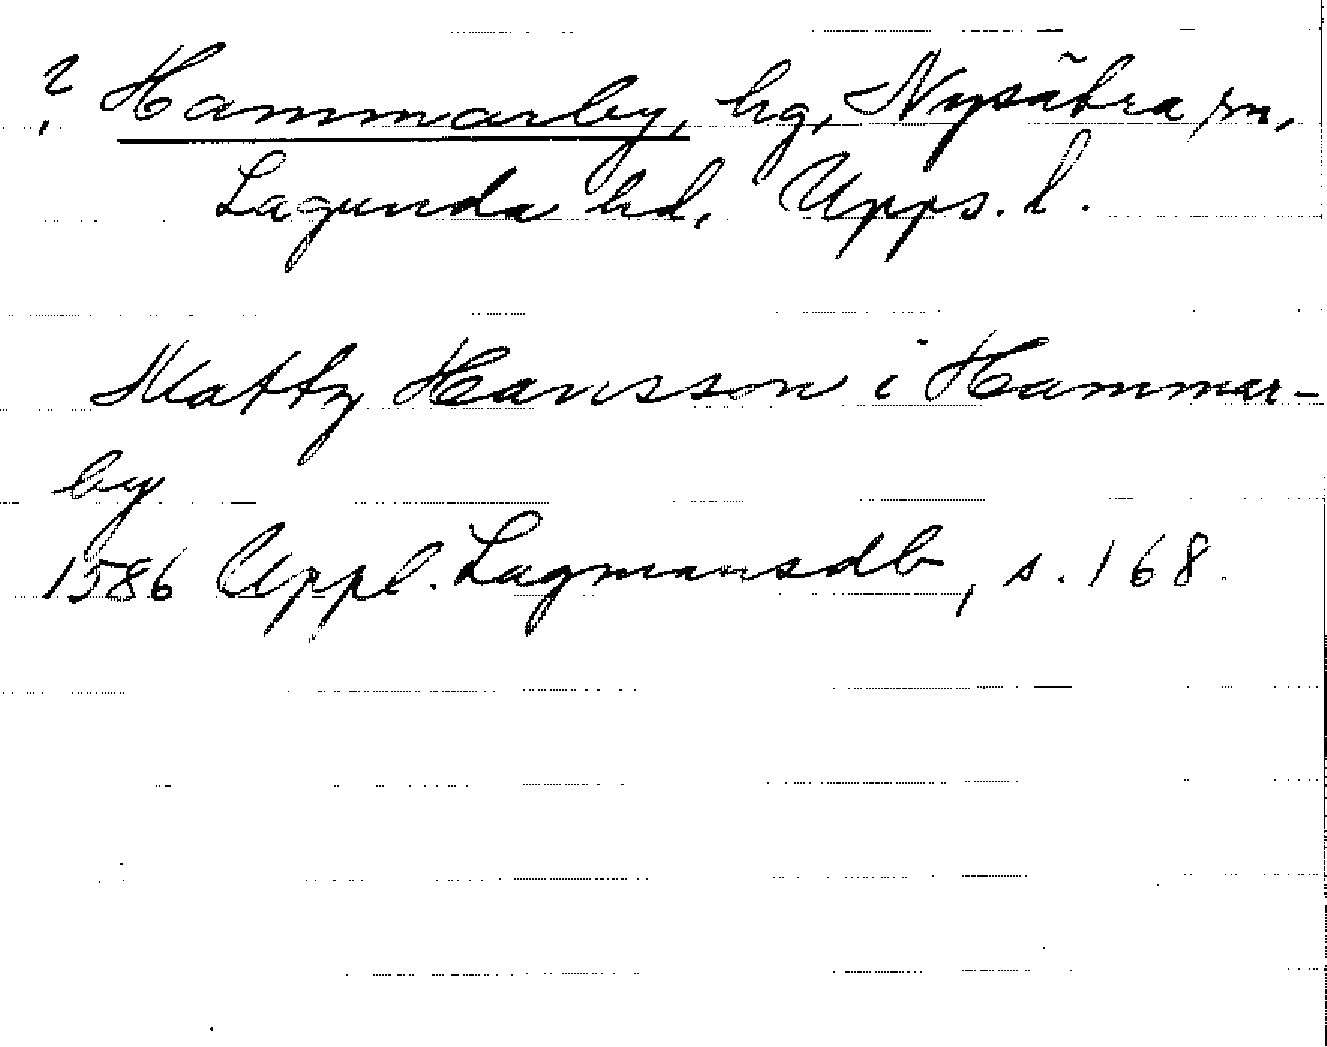 ? Hammarby, hg, Nysätra sn,
Lagunda hd, Upps. l.
Mattz Hansson i Hammar-
by
1586 Uppl. Lagmansdb, s. 168.